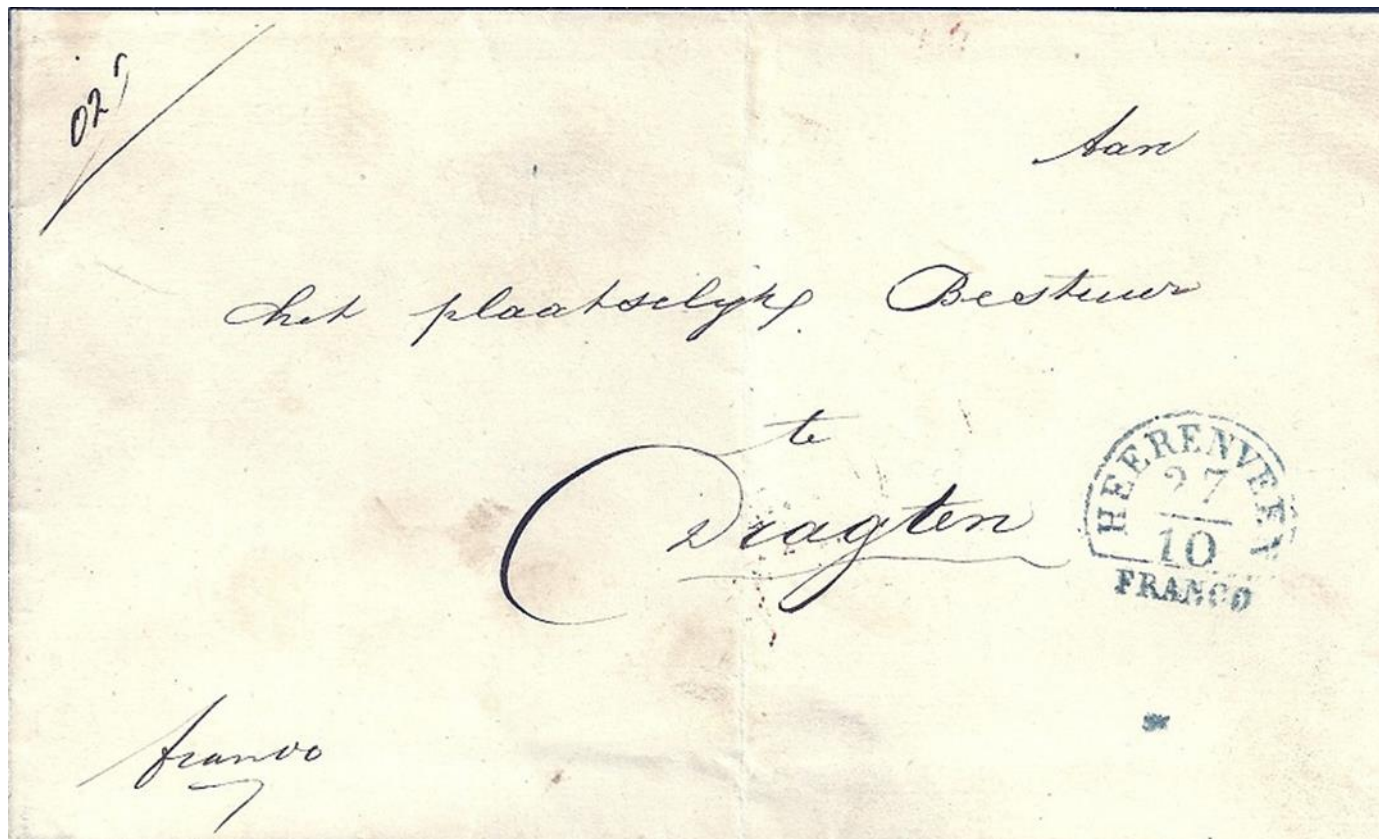 Aan
het plaatselijk Bestuur
te
Dragten
HEERENVEEN
27
10
FRANCO
franco